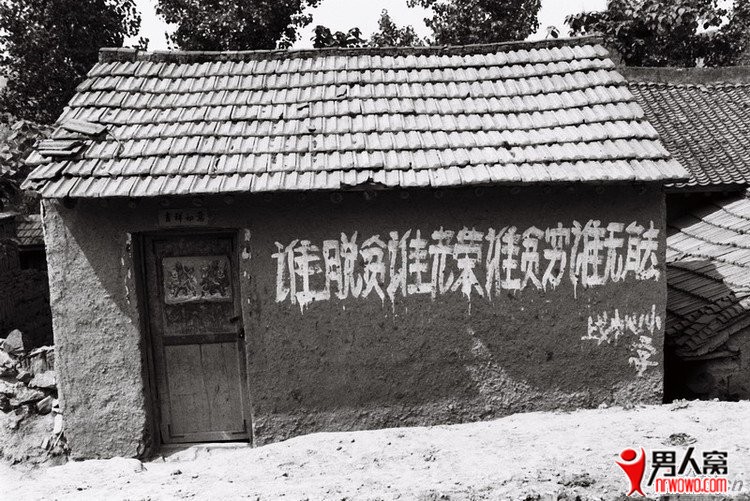 吉祥如意
谁脱贫谁光荣谁贫穷谁无能
小
学
男人窝
nrwowo.com